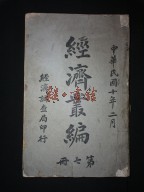 中華民國十年二月
經濟叢編
第七冊
經濟調查局印行